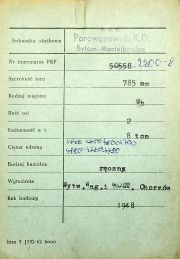 Jednostka służbowa
Parowozownia K.D.
Bytom-Maciejkowice
Nr inwentarzowy PKP 50558 2200-8
Szerokość toru 785 mm
Rodzaj wagonu Wh
Ilość osi 2
Ładowność w t. 8 ton
Ciężar własny
Rodzaj hamulca ręczny
Wytwórnia Wytw. Wag. i Chorzów
Rok budowy 1948